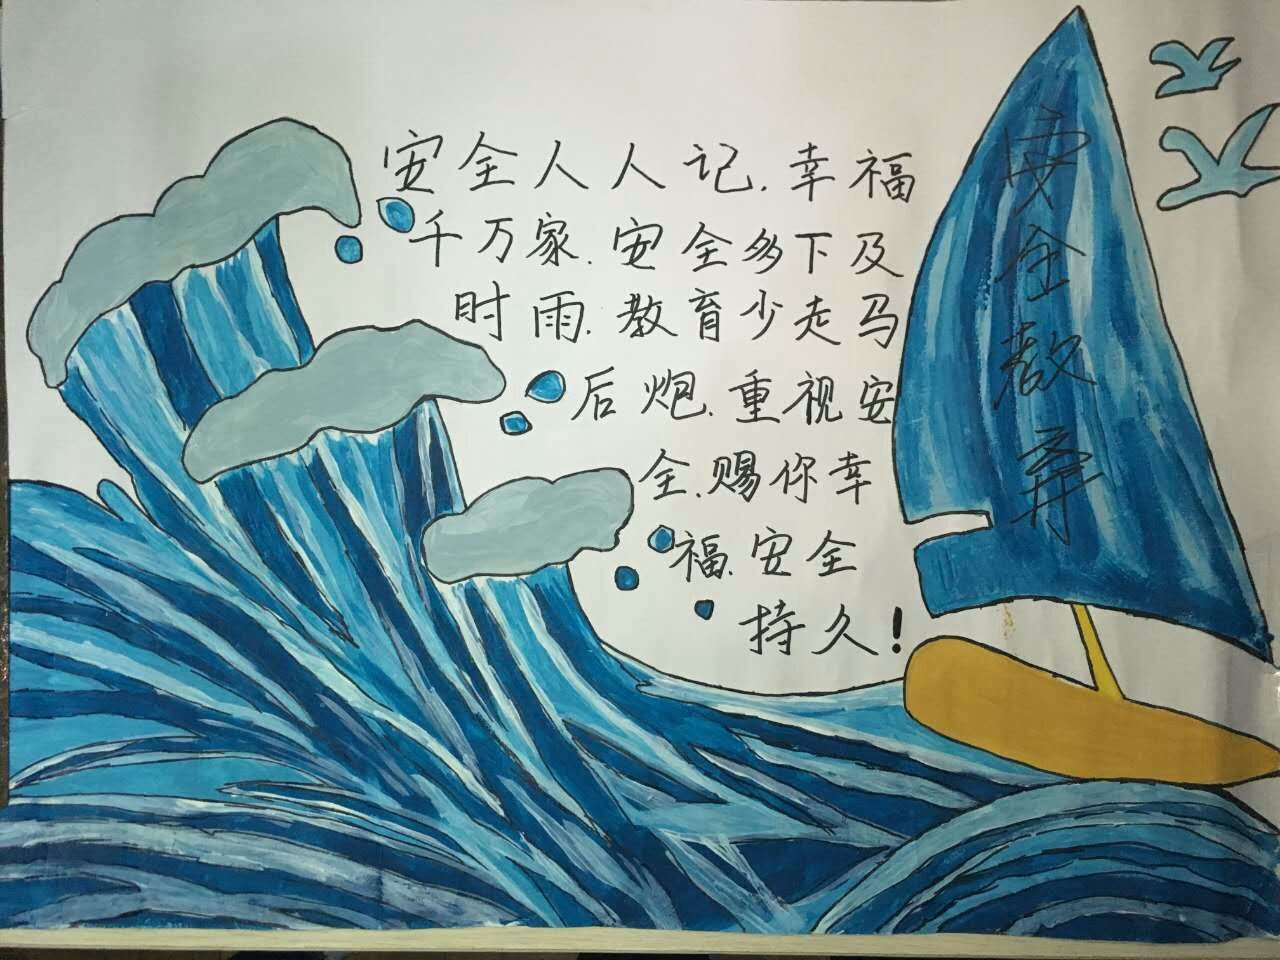 安全人人记.幸福
千万家.安全多下及
时雨.教育少走马
后炮.重视安
全.赐你幸
福.安全
持久!
安全教育